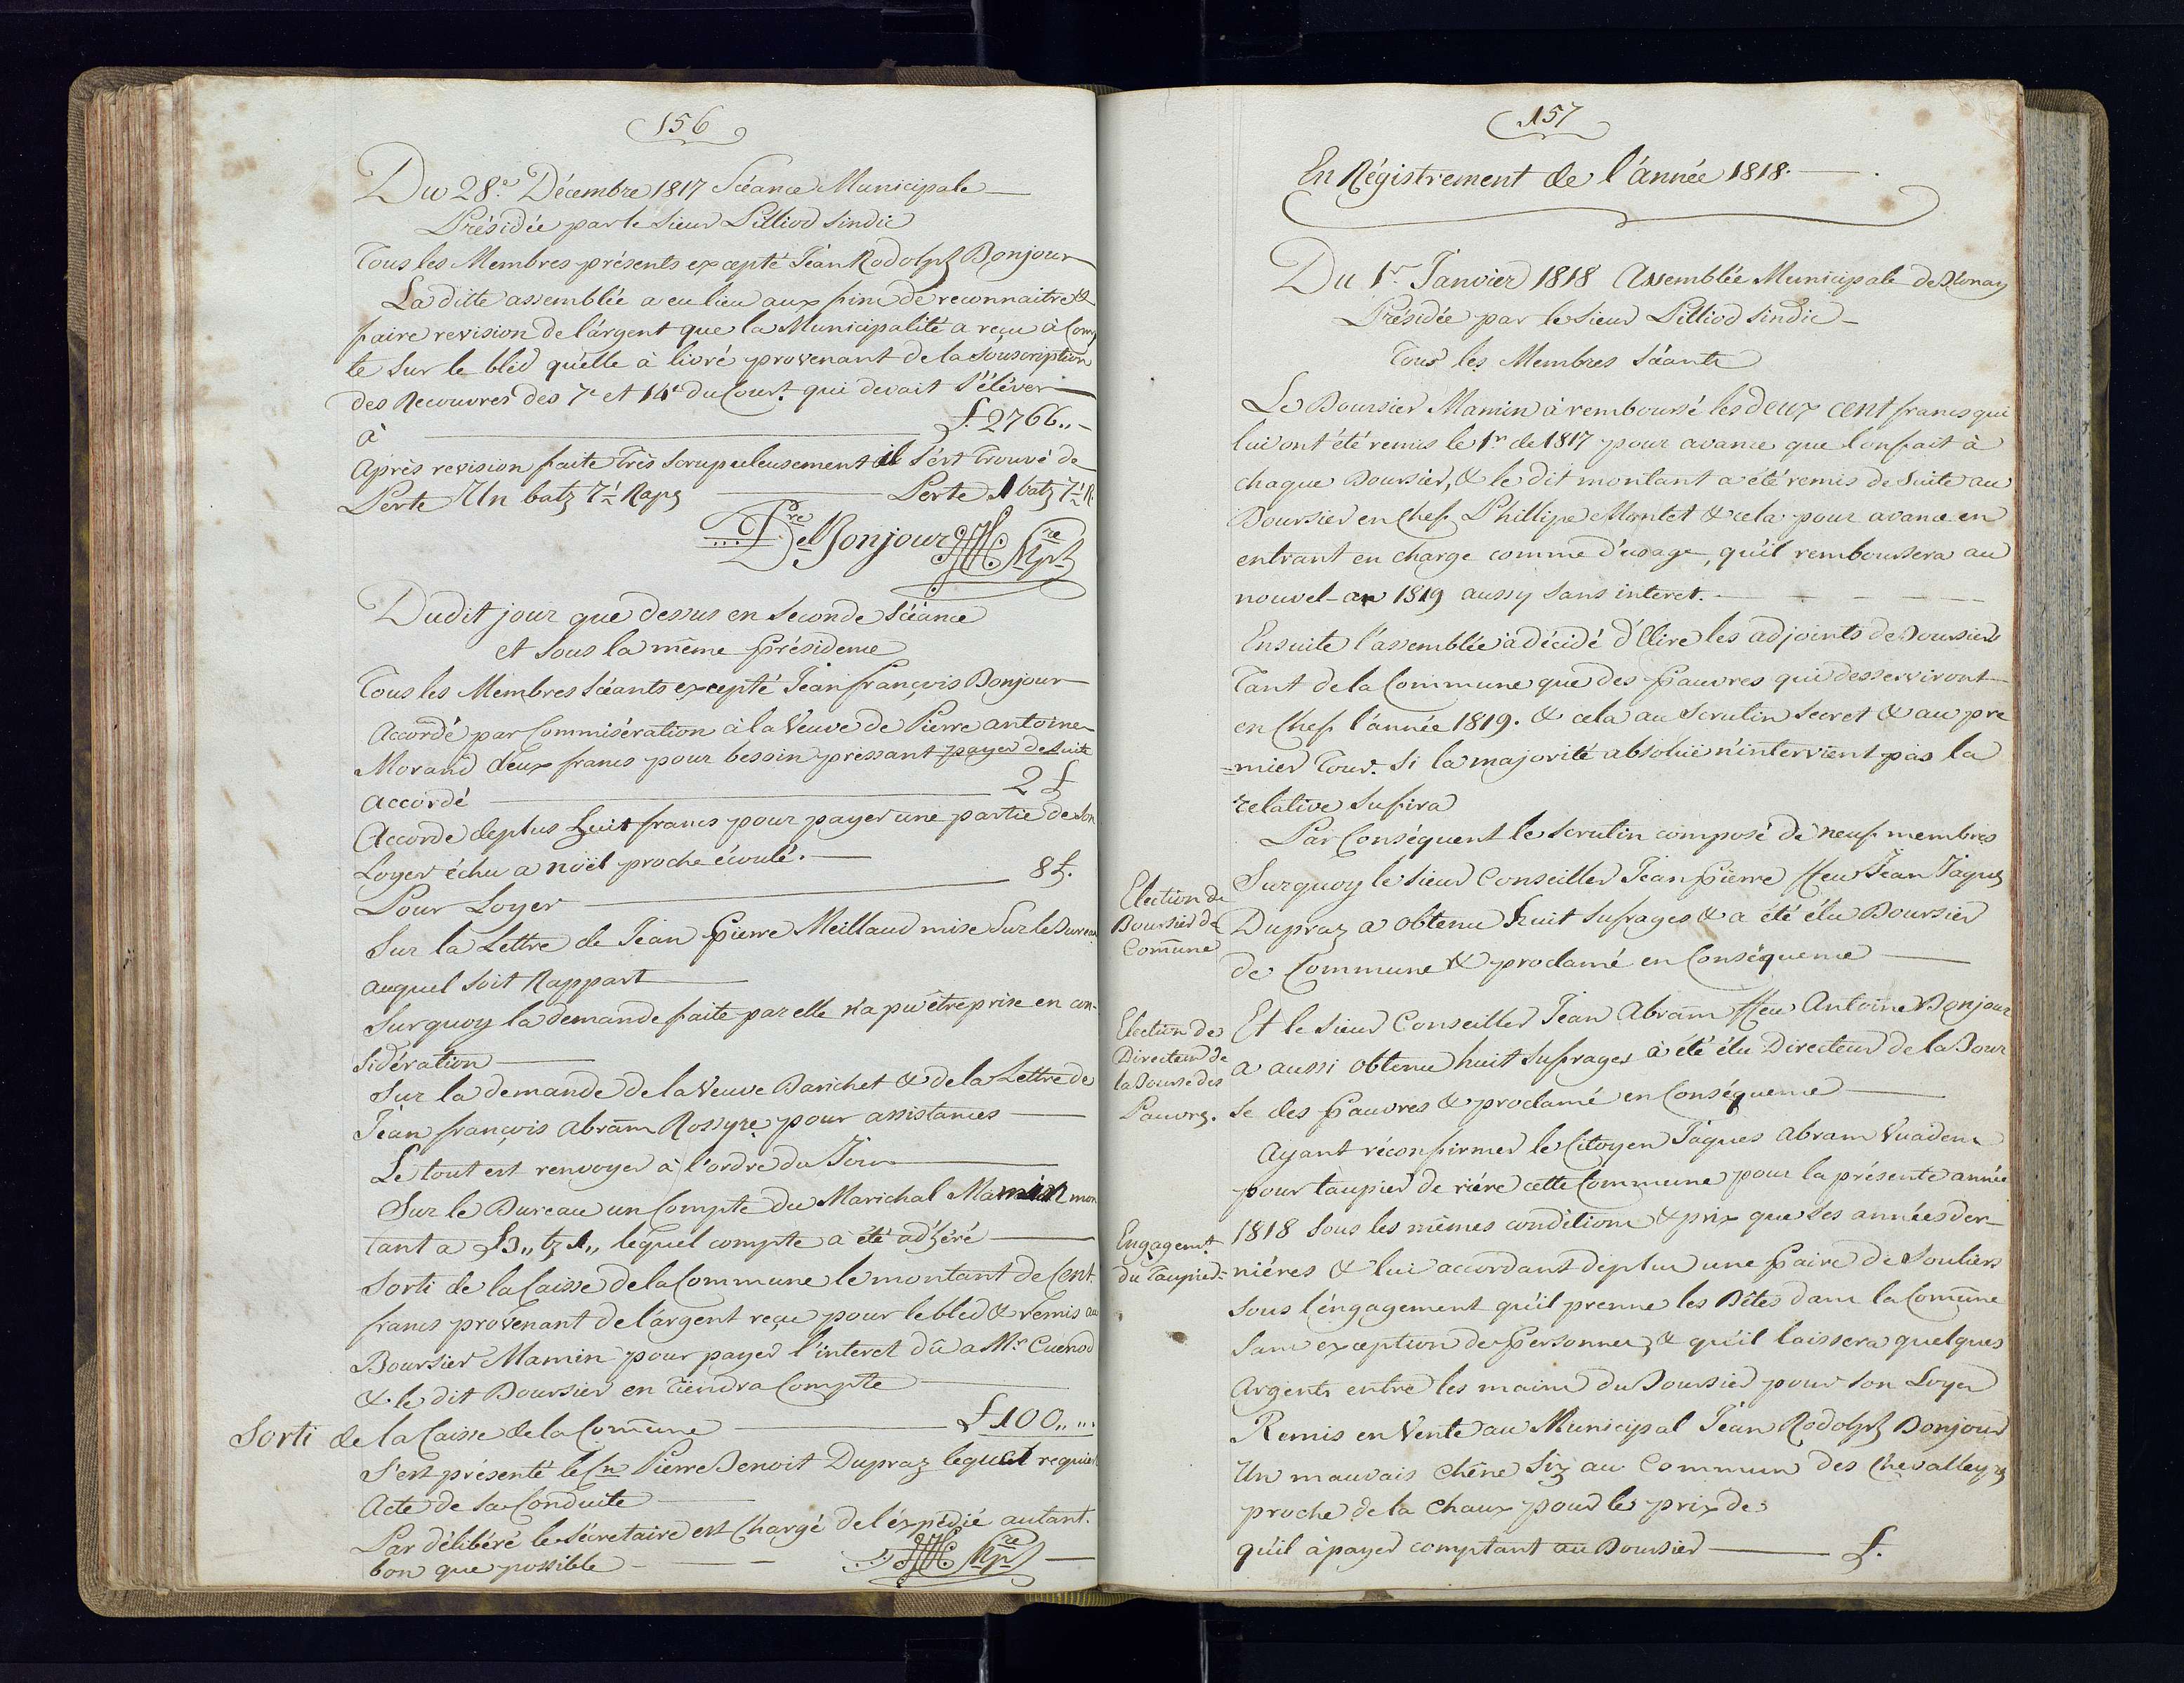 156
Du 28.e Décembre 1817 Séance Municipale
Présidée par le Sieur Pilliod Sindic
Tous les Membres présents excepté Jéan Rodolph Bonjour
La ditte assemblée a eu lieu aux fins de reconnaitre &
faire revision de l'argent que la Municipalité a reçu à Comp
te Sur le bléd qu'elle à livré provenant de la Souscription
des Recouvrés des 7e et 14e du Court. qui devait S'élever
à £ 2766.,–
Après revision faite très Scrupuleusement il S'est trouvé de
Perte Un batz 7½ Raps Perte 1 batz 7½ R.
Bonjour
Dudit jour que dessus en Seconde Séance
et Sous la même présidence
Tous les Membres Séants excepté Jéan françois Bonjour
Accordé par Commisération à la Veuve de Pierre Antoine
Morand deux francs pour bessoin pressant payer de Suite
accordé 2 £
Accordé deplus huit francs pour payer une partie de Son
Loyer échu a noël proche écoulé.
Pour Loyer 8 £.
Sur la Lettre de Jean Pierre Meillaud mise Sur le Bureau
auquel Soit Rapport
Surquoy la demande faite par elle n'a pu être prise en con-
sidération
Sur la demande de la Veuve Barichet & de la Lettre de
Jéan françois Abram Rossyre pour assistances
Le tout est renvoyer à l'ordre du Jour
Sur le Bureau un Compte du Marichal Mamin mon
tant a £ 3,, bz 1,, lequel compte a été adhéré
Sorti de la Caisse de la Commune le montant de Cent
francs provenant de l'argent reçu pour le bled & remis au
Boursier Mamin pour payer l'interet dû a Mr Cuenod
& le dit Boursier en tiendra Compte
Sorti de la Caisse de la Comune £ 100,, ,,.
S'est présenté le Cn Pierre Benoit Dupraz lequel requiert
Acte de sa Conduite
Par délibéré le Sécretaire est Chargé de l'éxpédié autant.
bon que possible
157
En Régistrement de l'année 1818.
Du 1r Janvier 1818 Assemblée Municipale de Blonay
Présidée par le Sieur Pilliod Sindic
Tous les Membres Séants
Le Boursier Mamin à remboursé les deux cent francs qui
lui ont été remis le 1r de 1817 pour avance que l'on fait à
chaque Boursier, & le dit montant a été remis de Suite au
Boursier en Chef Phillipe Montet & cela pour avance en
entrant en charge comme d'usage, qu'il remboursera au
nouvel-an 1819 aussy Sans interet.
Ensuite l'assemblée à décidé d'Elire les adjoints de Boursiers
Tant de la Commune que des Pauvres qui desserviront
en Chef l'année 1819. & cela au Scrutin Secret & au pre
=mier Tour. Si la majorité absoluë n'intervient pas la
relative Sufira
Par Conséquent le Scrutin composé de neuf membres
Election de
Boursier de
Comune
Surquoy le Sieur Conseiller Jéan Pierre ffeu Jean Jaques
Dupraz a obtenu huit Sufrages & a été élu Boursier
de Commune & proclamé en Conséquence
Election de
Directeur de
la Bourse des
Pauvres.
Et le Sieur Conseiller Jéan Abram ffeu Antoine Bonjour
a aussi obtenu huit Sufrages à été élu Directeur de la Bour
se des Pauvres & proclamé en Conséquence
Ayant réconfirmer le Citoyen Jaques Abram Vuadens
pour taupier de riére cette Commune pour la présente année
Engagemt.
du Taupier.
1818 Sous les mêmes conditions & prix que les années der-
niéres & lui accordant deplus une paire de Souliers
Sous l'engagement qu'il prenne les Bêtes dans la Comune
Sans exception de personnes & qu'il laissera quelques
Argents entre les mains du Boursier pour Son Loyer
Remis en Vente au Municipal Jéan Rodolph Bonjour
Un mauvais chêne Siz au Commun des Chevalleyres
proche de la Chaux pour le prix de
qu'il à payer comptant au Boursier £.